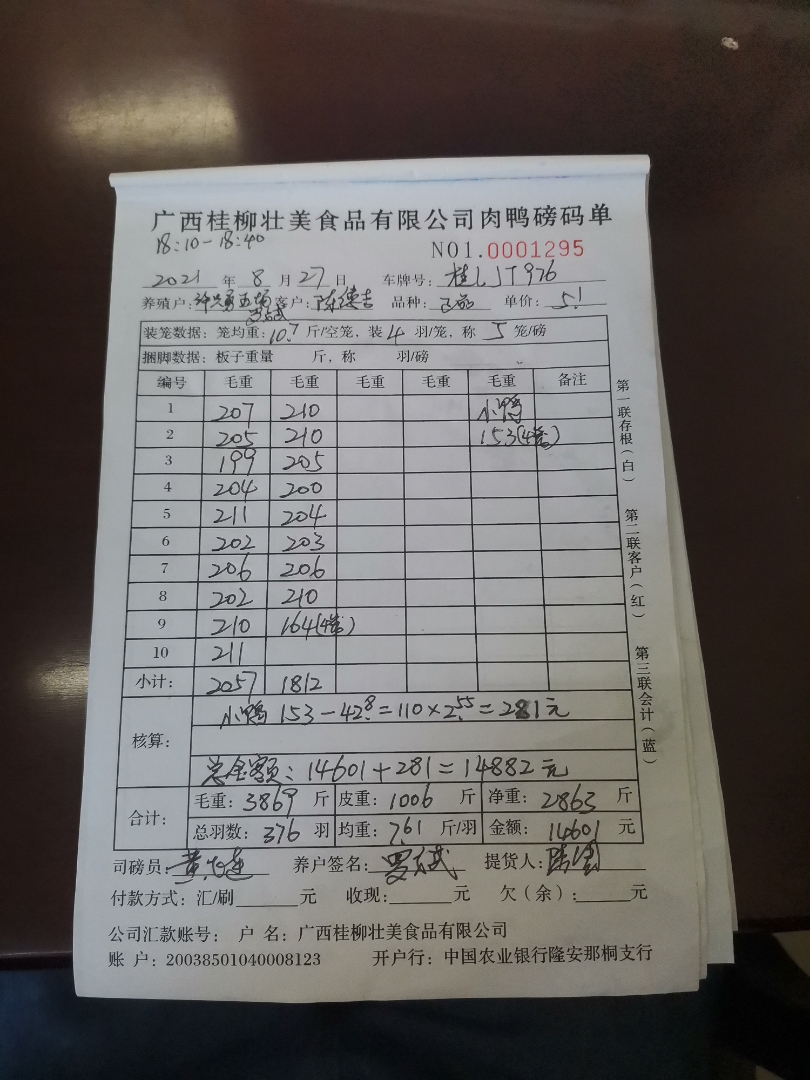 广西桂柳壮美食品有限公司肉鸭磅码单
18:10-18:40
NO1.0001295
2021 年 8 月 27 日 车牌号: 桂 J T976
养殖户: 五场 客户: 陈德吉 品种: 正品 单价: 5.1
装笼数据: 笼均重: 10.7 斤/空笼, 装 4 羽/笼, 称 5 笼/磅
捆脚数据: 板子重量 斤, 称 羽/磅
编号 毛重 毛重 毛重 毛重 毛重 备注
1 207 210 小鸭
2 205 210 153(4笼)
3 199 205
4 204 200
5 211 204
6 202 203
7 206 206
8 202 210
9 210 164(4笼)
10 211
小计: 2057 1812
核算: 小鸭 153-42.8=110×2.55=281元
总金额: 14601+281=14882元
合计: 毛重: 3869 斤 皮重: 1006 斤 净重: 2863 斤
总羽数: 376 羽 均重: 7.61 斤/羽 金额: 14601 元
司磅员: 黄 养户签名: 罗 武 提货人:
付款方式: 汇/刷 元 收现: 元 欠(余): 元
公司汇款账号: 户 名: 广西桂柳壮美食品有限公司
账 户: 20038501040008123 开户行: 中国农业银行隆安那桐支行
第一联存根(白)
第二联客户(红)
第三联会计(蓝)